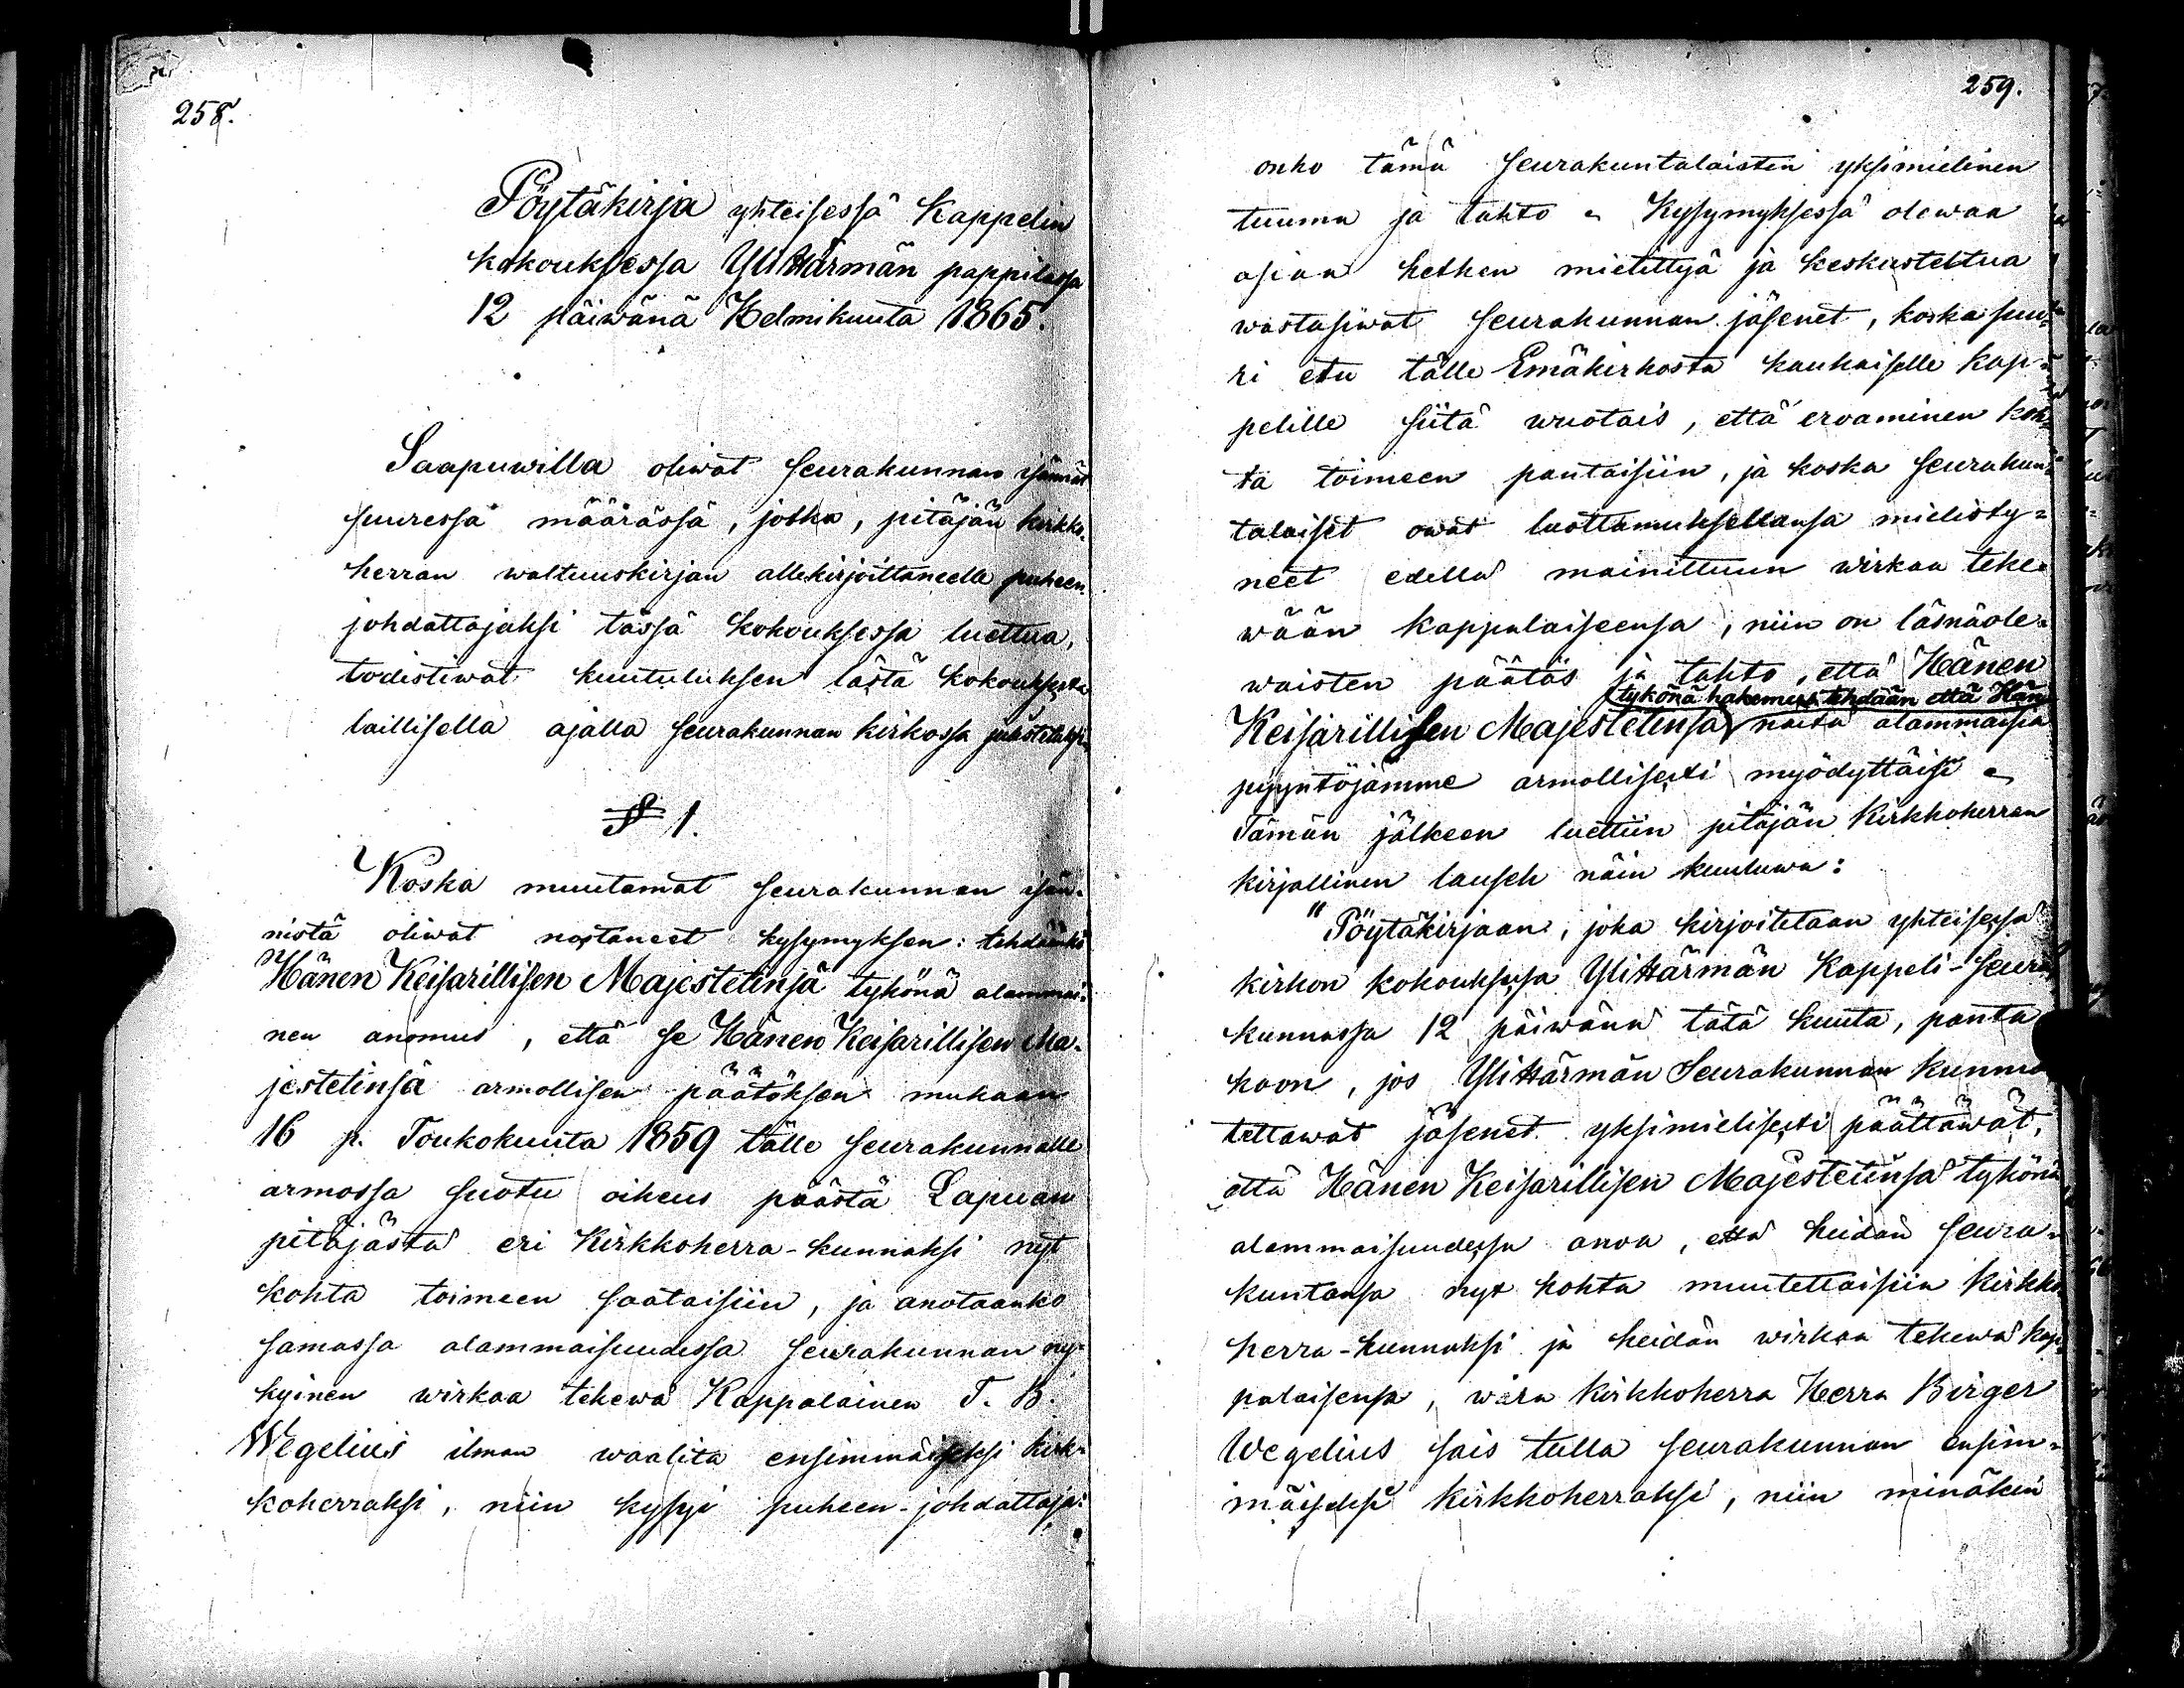 258.
Pöytäkirja yhteisessä Kappelin
kokouksessa YliHärmän pappilassa
12 päiwänä Helmikuuta 1865.
Saapuwilla oliwat seurakunnan isännät
suuressa määrässä, jotka, pitäjän kirkko-
herran waltuuskirjan allekirjoittaneelle puheen
johdattajaksi tässä kokouksessa luettua,
todistiwat kuutuluksen tästä kokouksesta
laillisella ajalla seurakunnan kirkossa
§ 1.
Koska muutamat seurakunnan isän-
nistä oliwat nostaneet kysymyksen: tehdäänkö
Hänen Keisarillisen Majestetinsä tykönä alammai-
nen anomus, että se Hänen Keisarillisen Ma-
jestetinsä armollisen päätöksen mukaan
16 p. Toukokuuta 1859 tälle seurakunnalle
armossa suotu oikeus päästä Lapuan
pitäjästä eri Kirkkoherra-kunnaksi nyt
kohta toimeen saataisiin, ja anotaanko
samassa alammaisuudessa seurakunnan ny-
kyinen wirkaa tekewä Kappalainen T. B.
Wegelius ilman waalita ensimmäiseksi kirk-
koherraksi, niin kysyi puheen-johdattaja:
259.
onko tämä seurakuntalaisten yksimielinen
tuuma ja tahto. Kysymyksessä olewaa
asiaa hetken mietittyä ja keskusteltua
wastasiwat seurakunnan jäsenet, koska suu-
ri etu tälle Emäkirkosta kaukaiselle kap-
pelille siitä wuotais, että eroaminen koh-
ta toimeen pantaisiin, ja koska seurakun-
talaiset owat luottamuksellansa mielisty-
neet edellä mainittuun wirkaa teke-
wään kappalaiseensa, niin on läsnäole-
waisten päätös ja tahto, että Hänen
tykönä hakemus tehdään että Hän
Keisarillisen Majestetinsa näitä alammaisia
pyyntöjämme armollisesti myödyttäisi.
Tämän jälkeen luettiin pitäjän Kirkkoherran
kirjallinen lauseh näin kuuluwa:
"Pöytäkirjaan, joka kirjoitetaan yhteisessä
kirkon kokouksessa YliHärmän Kappeli-seura
kunnassa 12 päiwänä tätä kuuta, panta
koon, jos YliHärmän Seurakunnan kunnioi
tettawat jäsenet yksimielisesti päättäwät,
että Hänen Keisarillisen Majestetinsa tykönä
alammaisuudessa anoa, että heidän seura-
kuntansa nyt kohta muutettaisiin kirkko
herra-kunnaksi ja heidän wirkaa tekewä kap-
palaisensa, wara Kirkkoherra Herra Birger
Wegelius sais tulla seurakunnan ensim-
mäiseksi kirkkoherraksi, niin minäkin